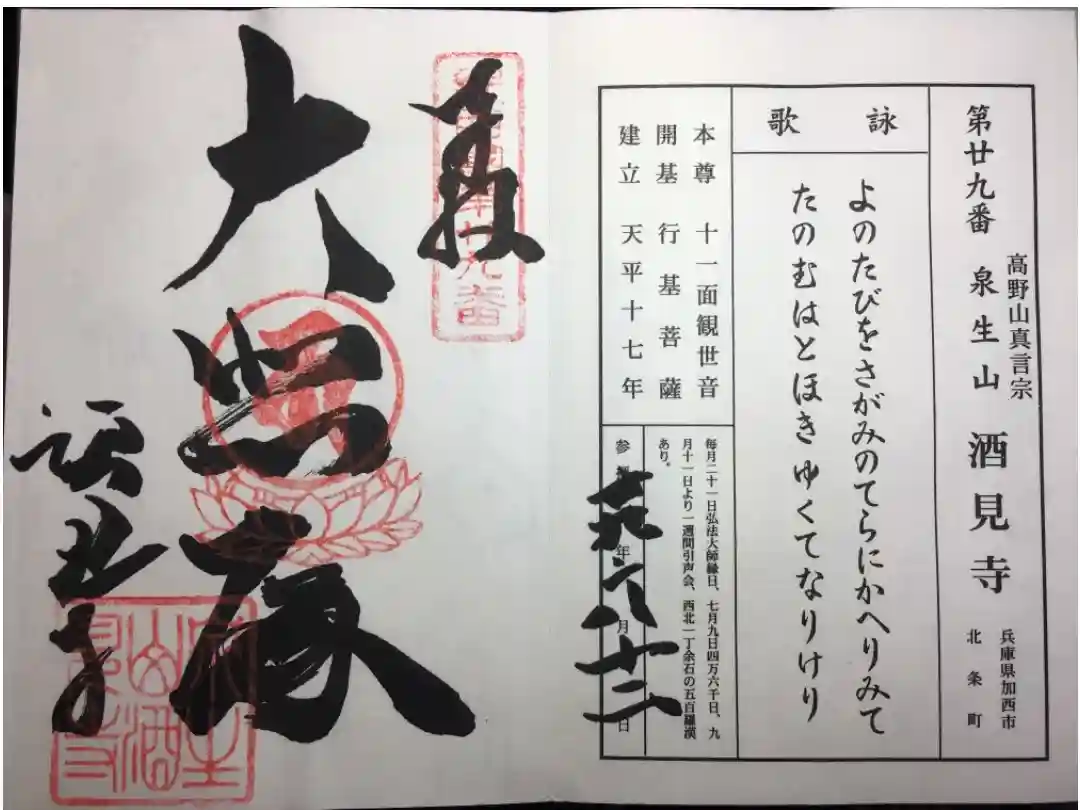 第廿九番 泉生山 酒見寺
高野山真言宗
兵庫県加西市
北条町
詠歌
よのたびをさがみのてらにかへりみて
たのむはとほきゆくてなりけり
本尊 十一面観世音
開基 行基菩薩
建立 天平十七年
毎月二十一日弘法大師縁日、七月九日四万六千日、九
月十一日より一週間引声会、西北一丁余石の五百羅漢
あり。
年 月 日
十二
廿九番
大悲殿